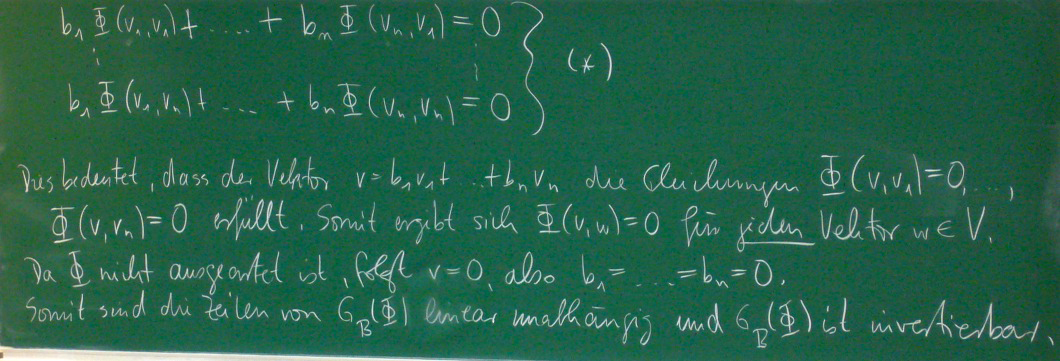 b₁ Φ(v₁,v₁) + .... + bₙ Φ(vₙ,v₁) = 0
⋮ ⋮ } (*)
b₁ Φ(v₁,vₙ) + ... + bₙ Φ(vₙ,vₙ) = 0
Dies bedeutet, dass der Vektor v = b₁v₁ + ... + bₙvₙ die Gleichungen Φ(v,v₁) = 0, ...,
Φ(v,vₙ) = 0 erfüllt. Somit ergibt sich Φ(v,w) = 0 für jeden Vektor w ∈ V.
Da Φ nicht ausgeartet ist, folgt v = 0, also b₁ = ... = bₙ = 0.
Somit sind die Zeilen von G_B(Φ) linear unabhängig und G_B(Φ) ist invertierbar.